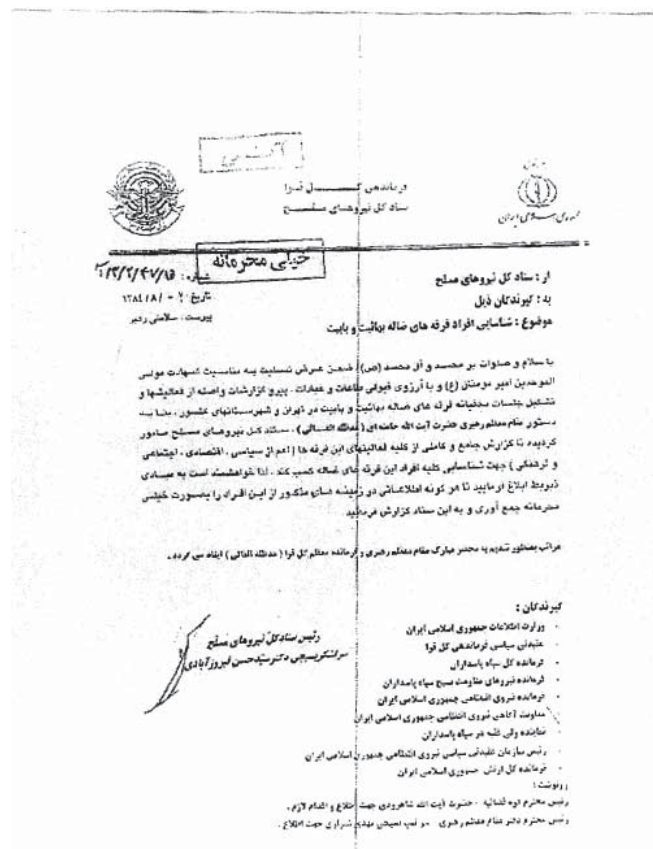 آتشی
فرماندهی کل قوا
ستاد کل نیروهای مسلح
جمهوری اسلامی ایران
خیلی محرمانه
تاریخ :
پیوست :
از : ستاد کل نیروهای مسلح
به : گیرندگان ذیل
موضوع : شناسایی افراد فرقه های ضاله بهائیت و بابیت
با سلام و صلوات بر محمد و آل محمد (ص) ، ضمن عرض تسلیت به مناسبت شهادت مولی
الموحدین امیر مومنان (ع) و با آرزوی قبولی طاعات و عبادات . پیرو گزارشات واصله از فعالیتها و
تشکیل جلسات مخفیانه فرقه های ضاله بهائیت و بابیت در تهران و شهرستانهای کشور ، بنا به
دستور مقام معظم رهبری حضرت آیت الله خامنه ای (مدظله العالی) ، ستاد کل نیروهای مسلح مامور
گردیده تا گزارش جامع و کاملی از کلیه فعالیتهای این فرقه ها ( اعم از سیاسی ، اقتصادی ، اجتماعی
و فرهنگی ) جهت شناسایی کلیه افراد این فرقه های ضاله کسب کند . لذا خواهشمند است به مبادی
ذیربط ابلاغ فرمایید تا هر گونه اطلاعاتی در زمینه های مذکور از این افراد را بصورت خیلی
محرمانه جمع آوری و به این ستاد گزارش فرمایید
مراتب بمنظور تقدیم به محضر مبارک مقام معظم رهبری و فرمانده معظم کل قوا ( مدظله العالی ) ایفاد می گردد .
رئیس ستاد کل نیروهای مسلح
سرلشکر بسیجی دکتر سید حسن فیروزآبادی
گیرندگان :
- وزارت اطلاعات جمهوری اسلامی ایران
- عقیدتی سیاسی فرماندهی کل قوا
- فرمانده کل سپاه پاسداران
- فرمانده نیروهای مقاومت بسیج سپاه پاسداران
- فرمانده نیروی انتظامی جمهوری اسلامی ایران
- معاونت آگاهی نیروی انتظامی جمهوری اسلامی ایران
- نماینده ولی فقیه در سپاه پاسداران
- رئیس سازمان عقیدتی سیاسی نیروی انتظامی جمهوری اسلامی ایران
- فرمانده کل ارتش جمهوری اسلامی ایران
رونوشت :
رئیس محترم قوه قضائیه - حضرت آیت الله شاهرودی جهت اطلاع و اقدام لازم .
رئیس محترم دفتر مقام معظم رهبری - جهت اطلاع .